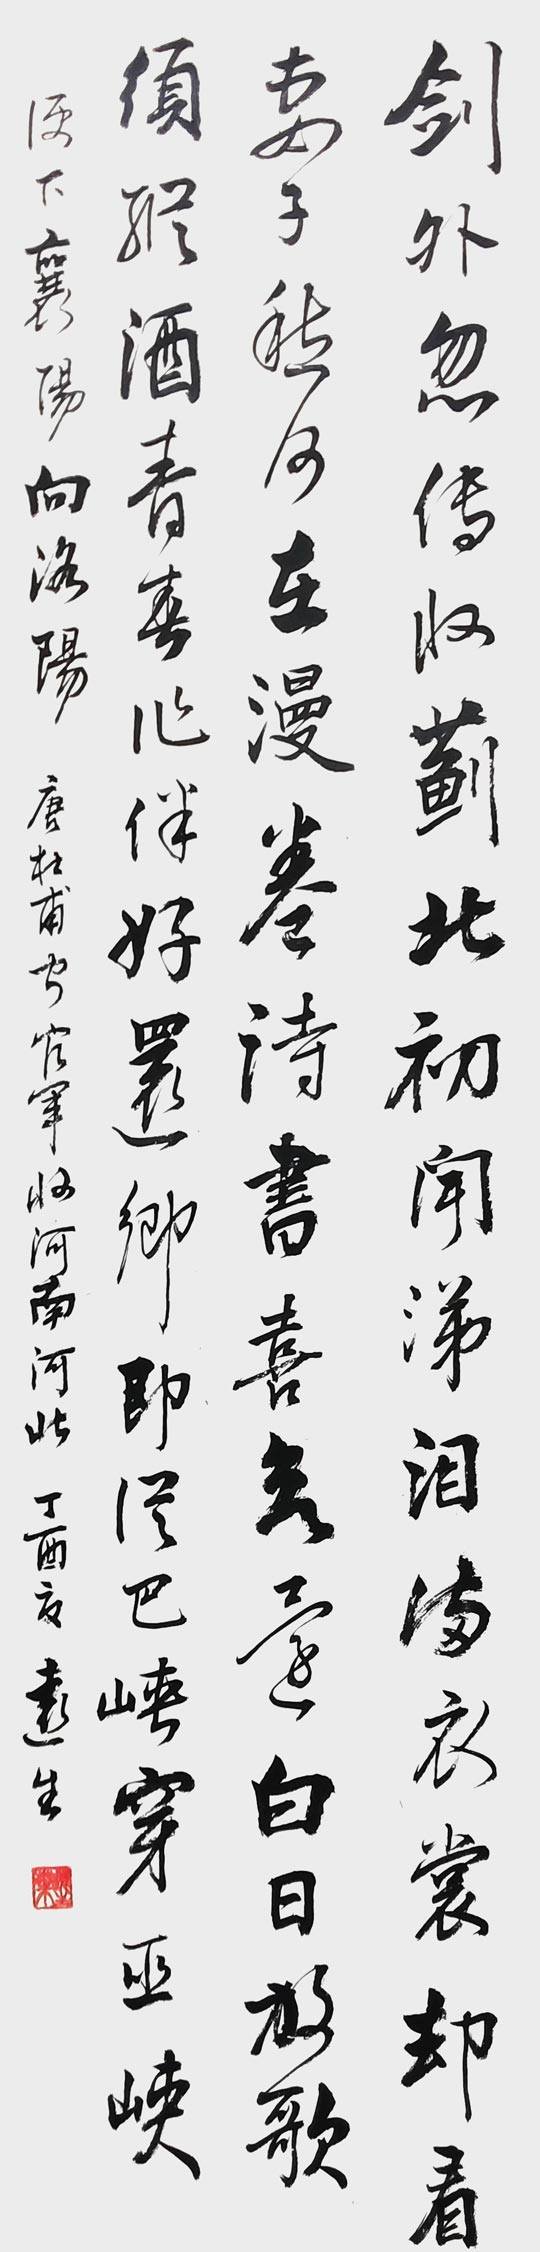 剑外忽传收蓟北初闻涕泪满衣裳却看
妻子愁何在漫卷诗書喜欲狂白日放歌
須縱酒青春作伴好還鄉即從巴峽穿巫峽
便下襄陽向洛陽 唐杜甫聞官軍收河南河北 丁酉夏 遠生